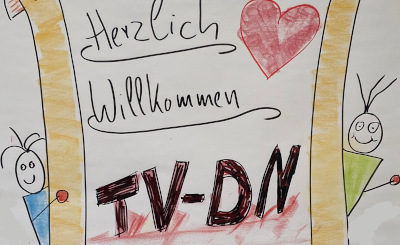 Herzlich
Willkommen
TV-DN